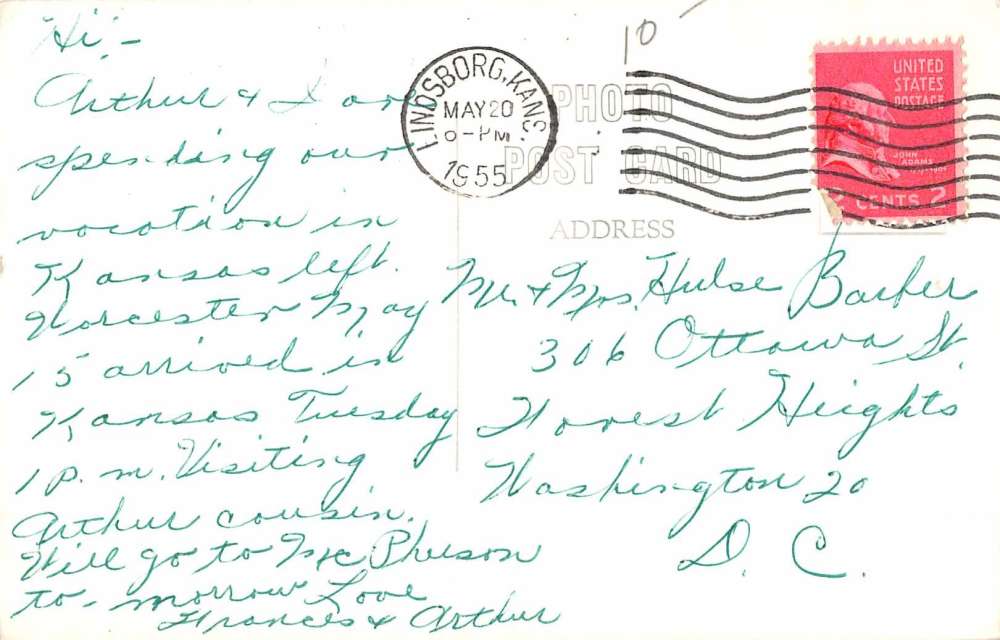 Hi! -
Arthur & I are
spending our
vacation in
Kansas left
Worcester May
15 arrived in
Kansas Tuesday
1 p. m. Visiting
Arthur cousin.
Will go to McPherson
to-morrow Love
Frances & Arthur
10
LINDSBORG, KANS.
MAY 20
6-PM
1955
PHOTO
POST CARD
ADDRESS
UNITED
STATES
POSTAGE
JOHN
ADAMS
2 CENTS 2
Mr. & Mrs. Hulse Barber
306 Ottawa St.
Forest Heights
Washington 20
D. C.